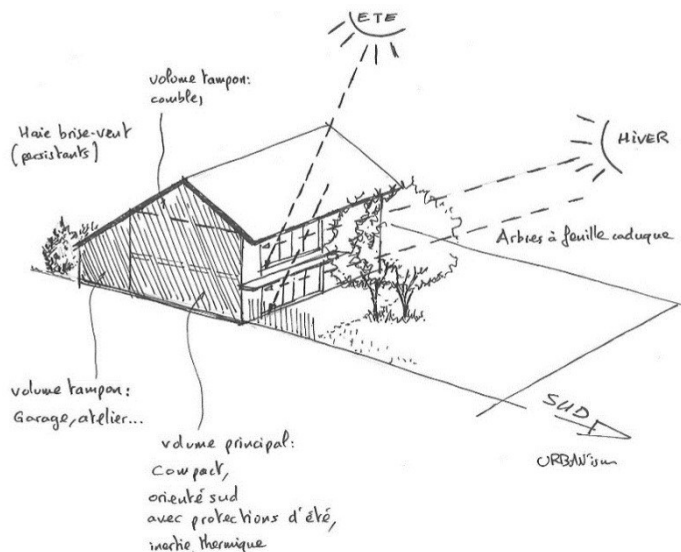 ETE
volume tampon:
combles
Haie brise-vent
(persistants)
HIVER
Arbres à feuille caduque
volume tampon:
Garage, atelier...
volume principal:
Compact,
orienté sud
avec protections d'été,
inertie thermique
SUD
URBANism